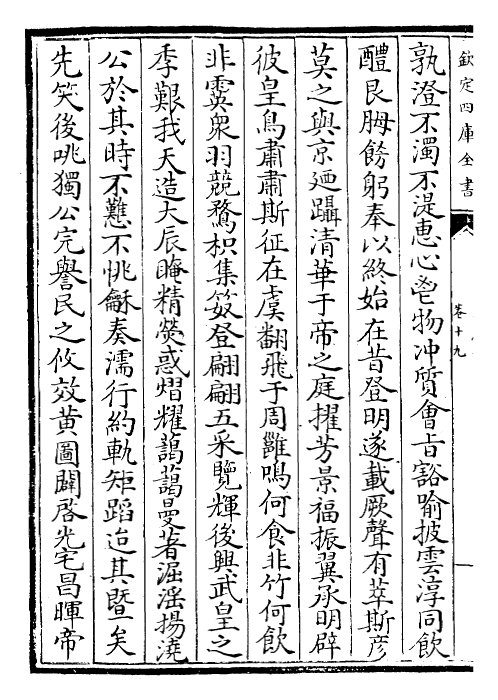 欽定四庫全書
卷十九
孰澄不濁不湜惠心鬯物冲質會旨豁喻披雲淳同飲
醴艮胟餝躬奉以終始在昔登明遂載厥聲有萃斯彦
莫之與京廼躡清華于帝之庭擢芳景福振翼承明辟
彼皇鳥肅肅斯征在虞翻飛于周雝鳴何食非竹何飲
非靈衆羽競鶩枳集笯登翩翩五采覽輝後興武皇之
季艱我天造大辰晻精熒惑熠耀藹藹曼著淈淫揚澆
公於其時不戁不恌龢奏濡行約軌矩蹈迨其曁矣
先笑後咷獨公完譽民之攸效黄圖闢啓光宅昌暉帝